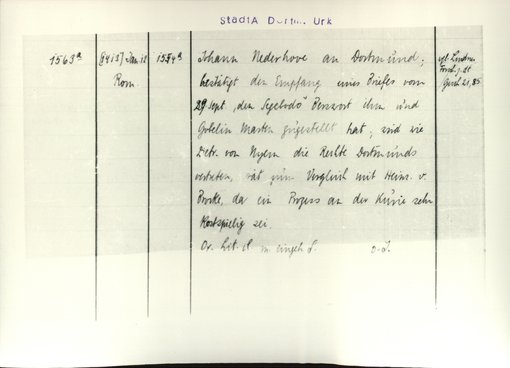 StadtA Dortm. Urk
1563a
[1415] Jan 18
Rom.
1554a
Johann Nederhove an Dortmund;
bestätigt den Empfang eines Briefes vom
29 Sept., den Segebodo ihm und
Gobelin Marten zugestellt hat; sind wie
Detr. von Nyem die Rechte Dortmunds
vertreten, rät zum Vergleich mit Heinr. v.
da ein Prozess an der Kurie sehr
kostspielig sei.
Or. Lit. cl m. eingeh S. o. J.
vgl. Lindner
Forsch. z. dt
Gesch. 21, 85